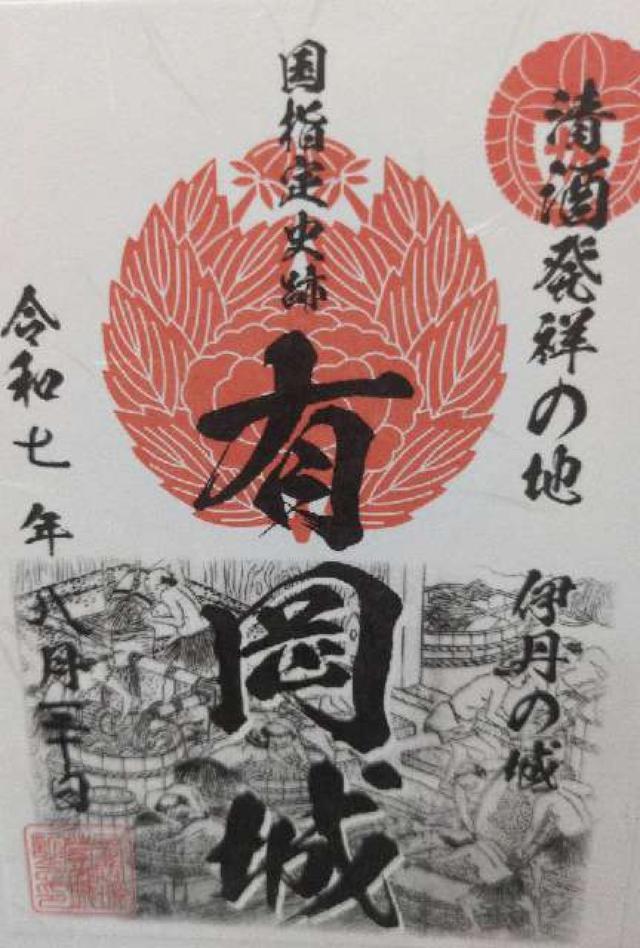 清酒発祥の地
伊丹の城
国指定史跡
有岡城
令和七年
八月